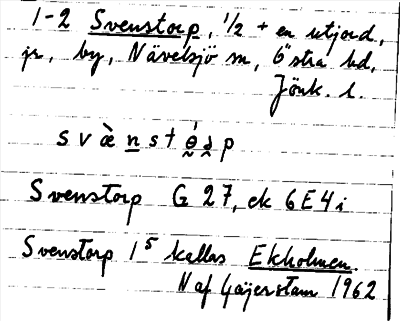 1-2 Svenstorp, 1/2 + en utjord,
jr, by, Nävelsjö sn, Östra hd,
Jönk. l.
s v æ̀ n s t ó̤ ə̯ p
Svenstorp G 27, ek 6E4i
Svenstorp 1⁵ kallas Ekholmen.
N af Geijerstam 1962